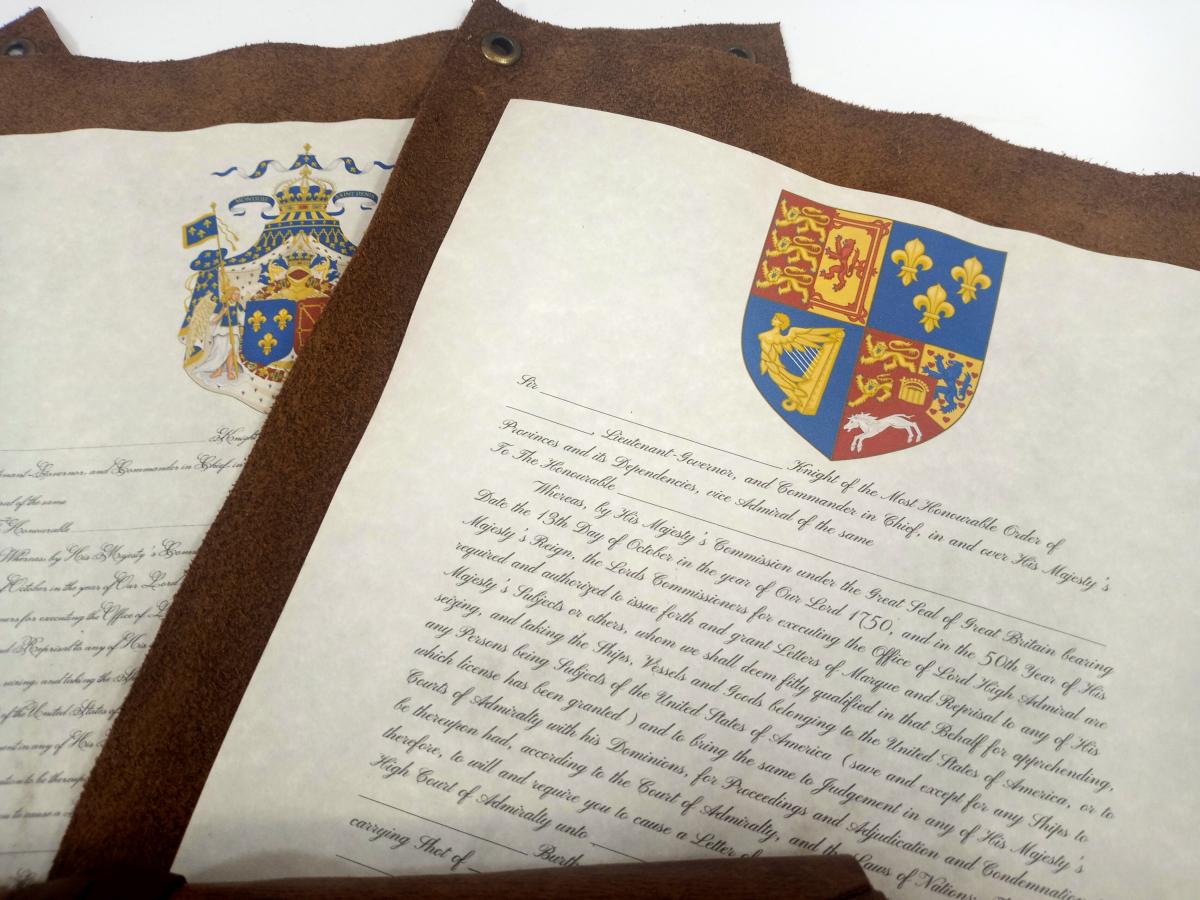 MONTJOIE
Knight
Governor, and Commander in Chief in
of the same
Honourable
Whereas by His Majesty's
October in the year of Our Lord
for executing the Office of
Reprisal to any of His
and taking the
of the United States of
in any of His
to be
to cause a
Sir ____ Knight of the Most Honourable Order of
____, Lieutenant-Governor, and Commander in Chief, in and over His Majesty's
Provinces and its Dependencies, vice Admiral of the same
To The Honourable ____
Whereas, by His Majesty's Commission under the Great Seal of Great Britain bearing
Date the 13th Day of October in the year of Our Lord 1750, and in the 50th Year of His
Majesty's Reign, the Lords Commissioners for executing the Office of Lord High Admiral are
required and authorized to issue forth and grant Letters of Marque and Reprisal to any of His
Majesty's Subjects or others, whom we shall deem fitly qualified in that Behalf for apprehending,
seizing, and taking the Ships, Vessels and Goods belonging to the United States of America, or to
any Persons being Subjects of the United States of America (save and except for any Ships to
which license has been granted ) and to bring the same to Judgement in any of His Majesty's
Courts of Admiralty with his Dominions, for Proceedings and Adjudication and Condemnation
be thereupon had, according to the Court of Admiralty, and the Laws of Nations;
therefore, to will and require you to cause a Letter of
High Court of Admiralty unto ____
____ Burth
carrying Shot of ____